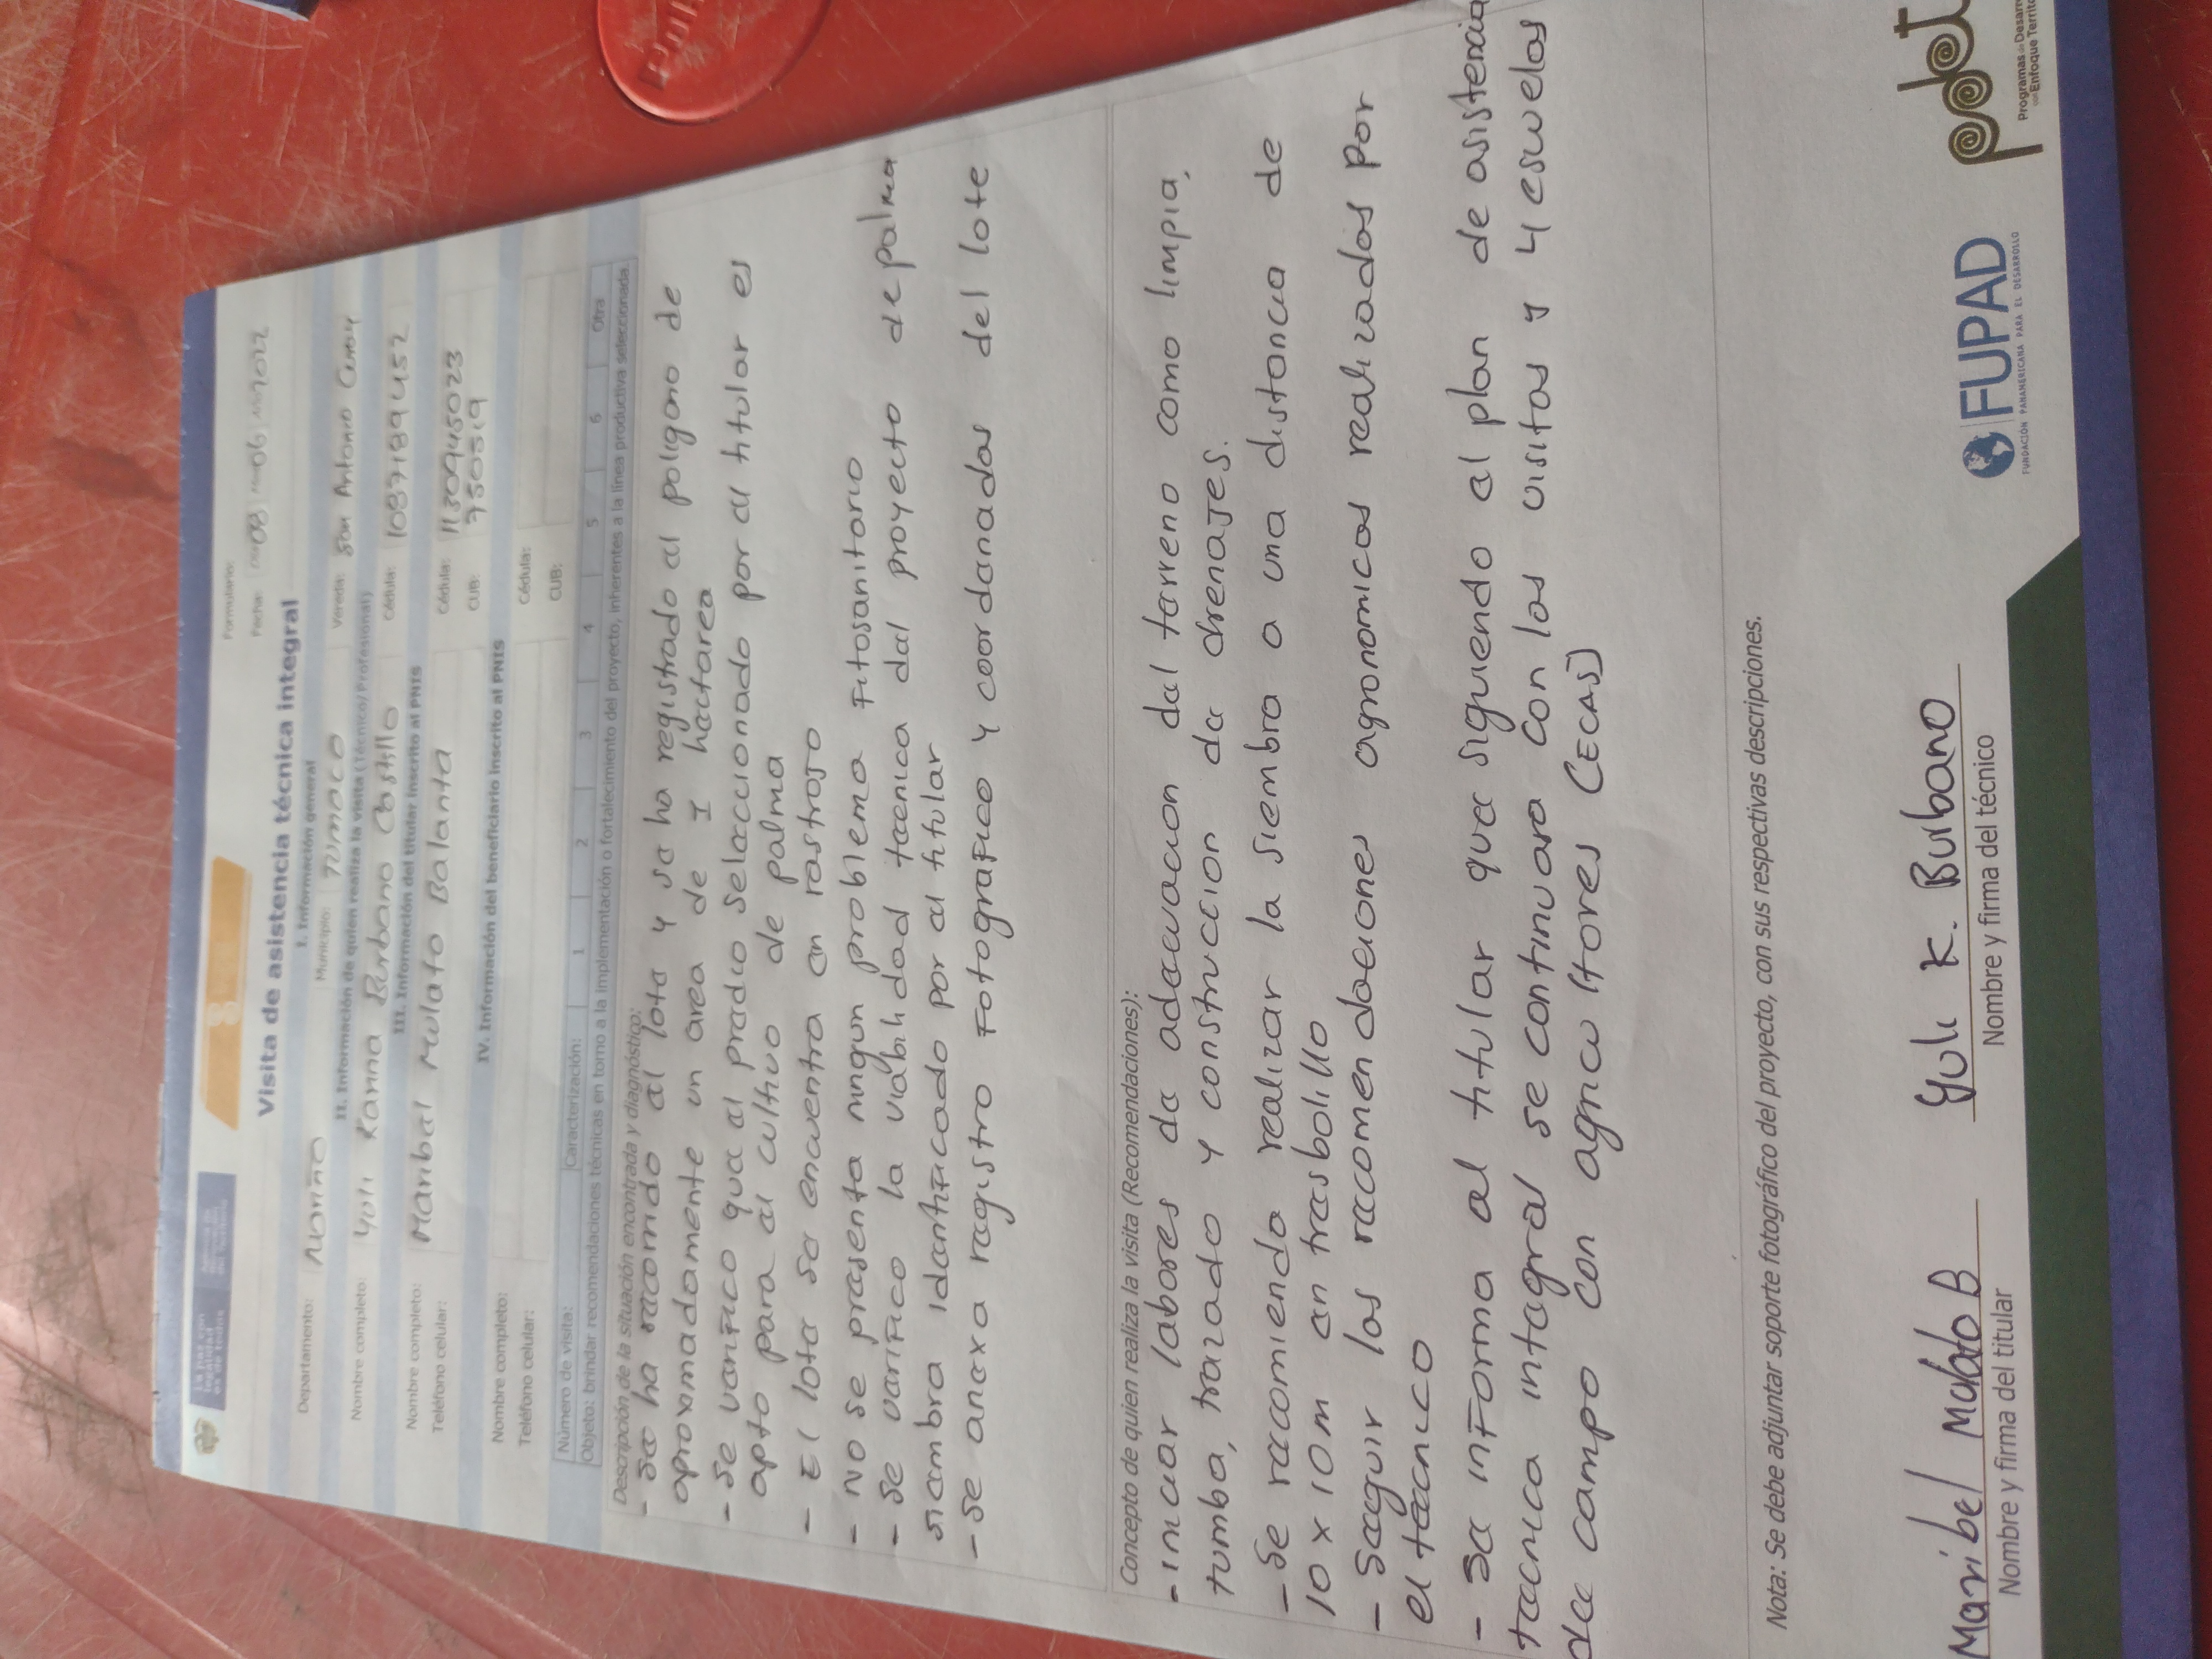 La paz con
legalidad
es de todos
Formulario:
Visita de asistencia técnica integral
Fecha: 08 06 2022
I. Información general
Departamento: Nariño Municipio: Tumaco Vereda: San Antonio Curay
II. Información de quien realiza la visita (Técnico/Profesional)
Nombre completo: Yuli Karina Burbano Castillo Cédula: 1087189452
III. Información del titular inscrito al PNIS
Nombre completo: Maribel Mulato Balanta Cédula: 1130945023
Teléfono celular: CUB: 7505519
IV. Información del beneficiario inscrito al PNIS
Nombre completo: Cédula:
Teléfono celular: CUB:
Número de visita: Caracterización: 1 2 3 4 5 6 Otra
Objeto: brindar recomendaciones técnicas en torno a la implementación o fortalecimiento del proyecto, inherentes a la línea productiva seleccionada.
Descripción de la situación encontrada y diagnóstico:
- Se ha recorrido el lote y se ha registrado el poligono de
aproximadamente un area de 1 hectarea
- Se verifico que el predio seleccionado por el titular es
apto para el cultivo de palma
- El lote se encuentra en rastrojo
- No se presenta ningun problema Fitosanitario
- Se verifico la viabilidad tecnica del proyecto de palma
siembra identificado por el titular
- Se anexa registro Fotografico y coordenadas del lote
Concepto de quien realiza la visita (Recomendaciones):
- iniciar labores de adecuacion del terreno como limpia,
tumba, trazado y construccion de drenajes.
- Se recomienda realizar la siembra a una distancia de
10 x 10 m en tresbolillo
- Seguir las recomendaciones agronomicas realizadas por
el tecnico
- Se informa al titular que siguiendo el plan de asistencia
tecnica integral se continuara con las visitas y 4 escuelas
de campo con agricultores (ECAS)
Nota: Se debe adjuntar soporte fotográfico del proyecto, con sus respectivas descripciones.
Maribel Mulato B Yuli K. Burbano
Nombre y firma del titular Nombre y firma del técnico
FUPAD
FUNDACIÓN PANAMERICANA PARA EL DESARROLLO
pdet
Programas de Desarr
con Enfoque Territo